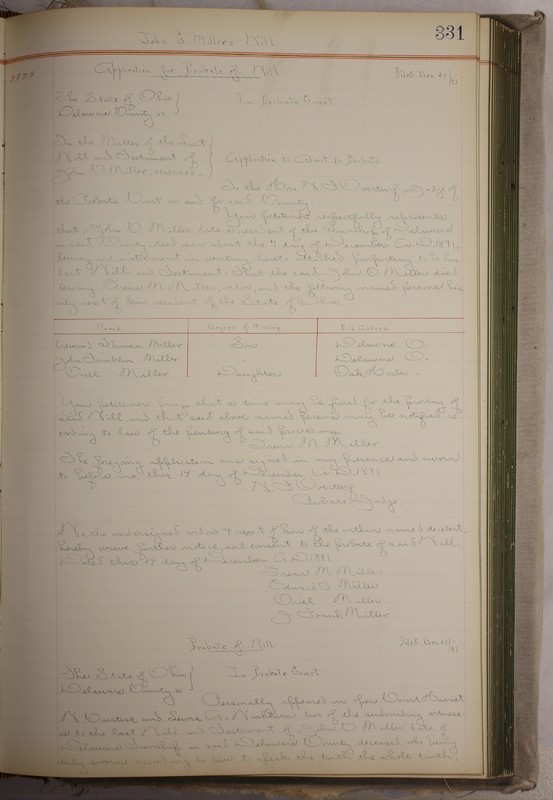 John O Millers Will
331
Application for Probate of Will
Filed Dec.
The State of Ohio
Delaware County ss
In Probate Court
In the Matter of the Last
Will and Testament of
John O Miller, deceased.
Application to Admit to Probate
To the Hon N F Overturf Judge of
the Probate Court in and for said County.
Your Petitioner respectfully represents
that John O Miller late a resident of the Township of Delaware
in said County, died on or about the 7 day of December A.D. 1891,
leaving an instrument in writing, hereto attached purporting to be his
last Will and Testament. That the said John O Miller died
leaving M. Miller, widow, and the following named persons his
only next of kin resident of the State of Ohio.
Name
Degree of Kinship
P.O. Address
Miller
Son
Delaware O.
John Franklin Miller
Delaware O.
Miller
Daughter
Your petitioner prays that a time may be fixed for the proving of
said Will and that said above named persons may be notified ac
cording to law of the pending of said proceedings.
M Miller
The foregoing application was signed in my presence and sworn
to before me, this day of December A.D. 1891
N F Overturf
Probate Judge
We the undersigned widow & next of kin of the within named decedent,
hereby waive further notice, and consent to the probate of said Will.
Dated this day of December A.D 1891
M Miller
Miller
Miller
J Frank Miller
Probate of Will
Filed Dec.
The State of Ohio
Delaware County ss
In Probate Court
Personally appeared in open Court
and two of the subscribing witnesses
to the last Will and Testament of John O Miller late of
Delaware Township in said Delaware County deceased who being
duly sworn according to law to speak the truth the whole truth,